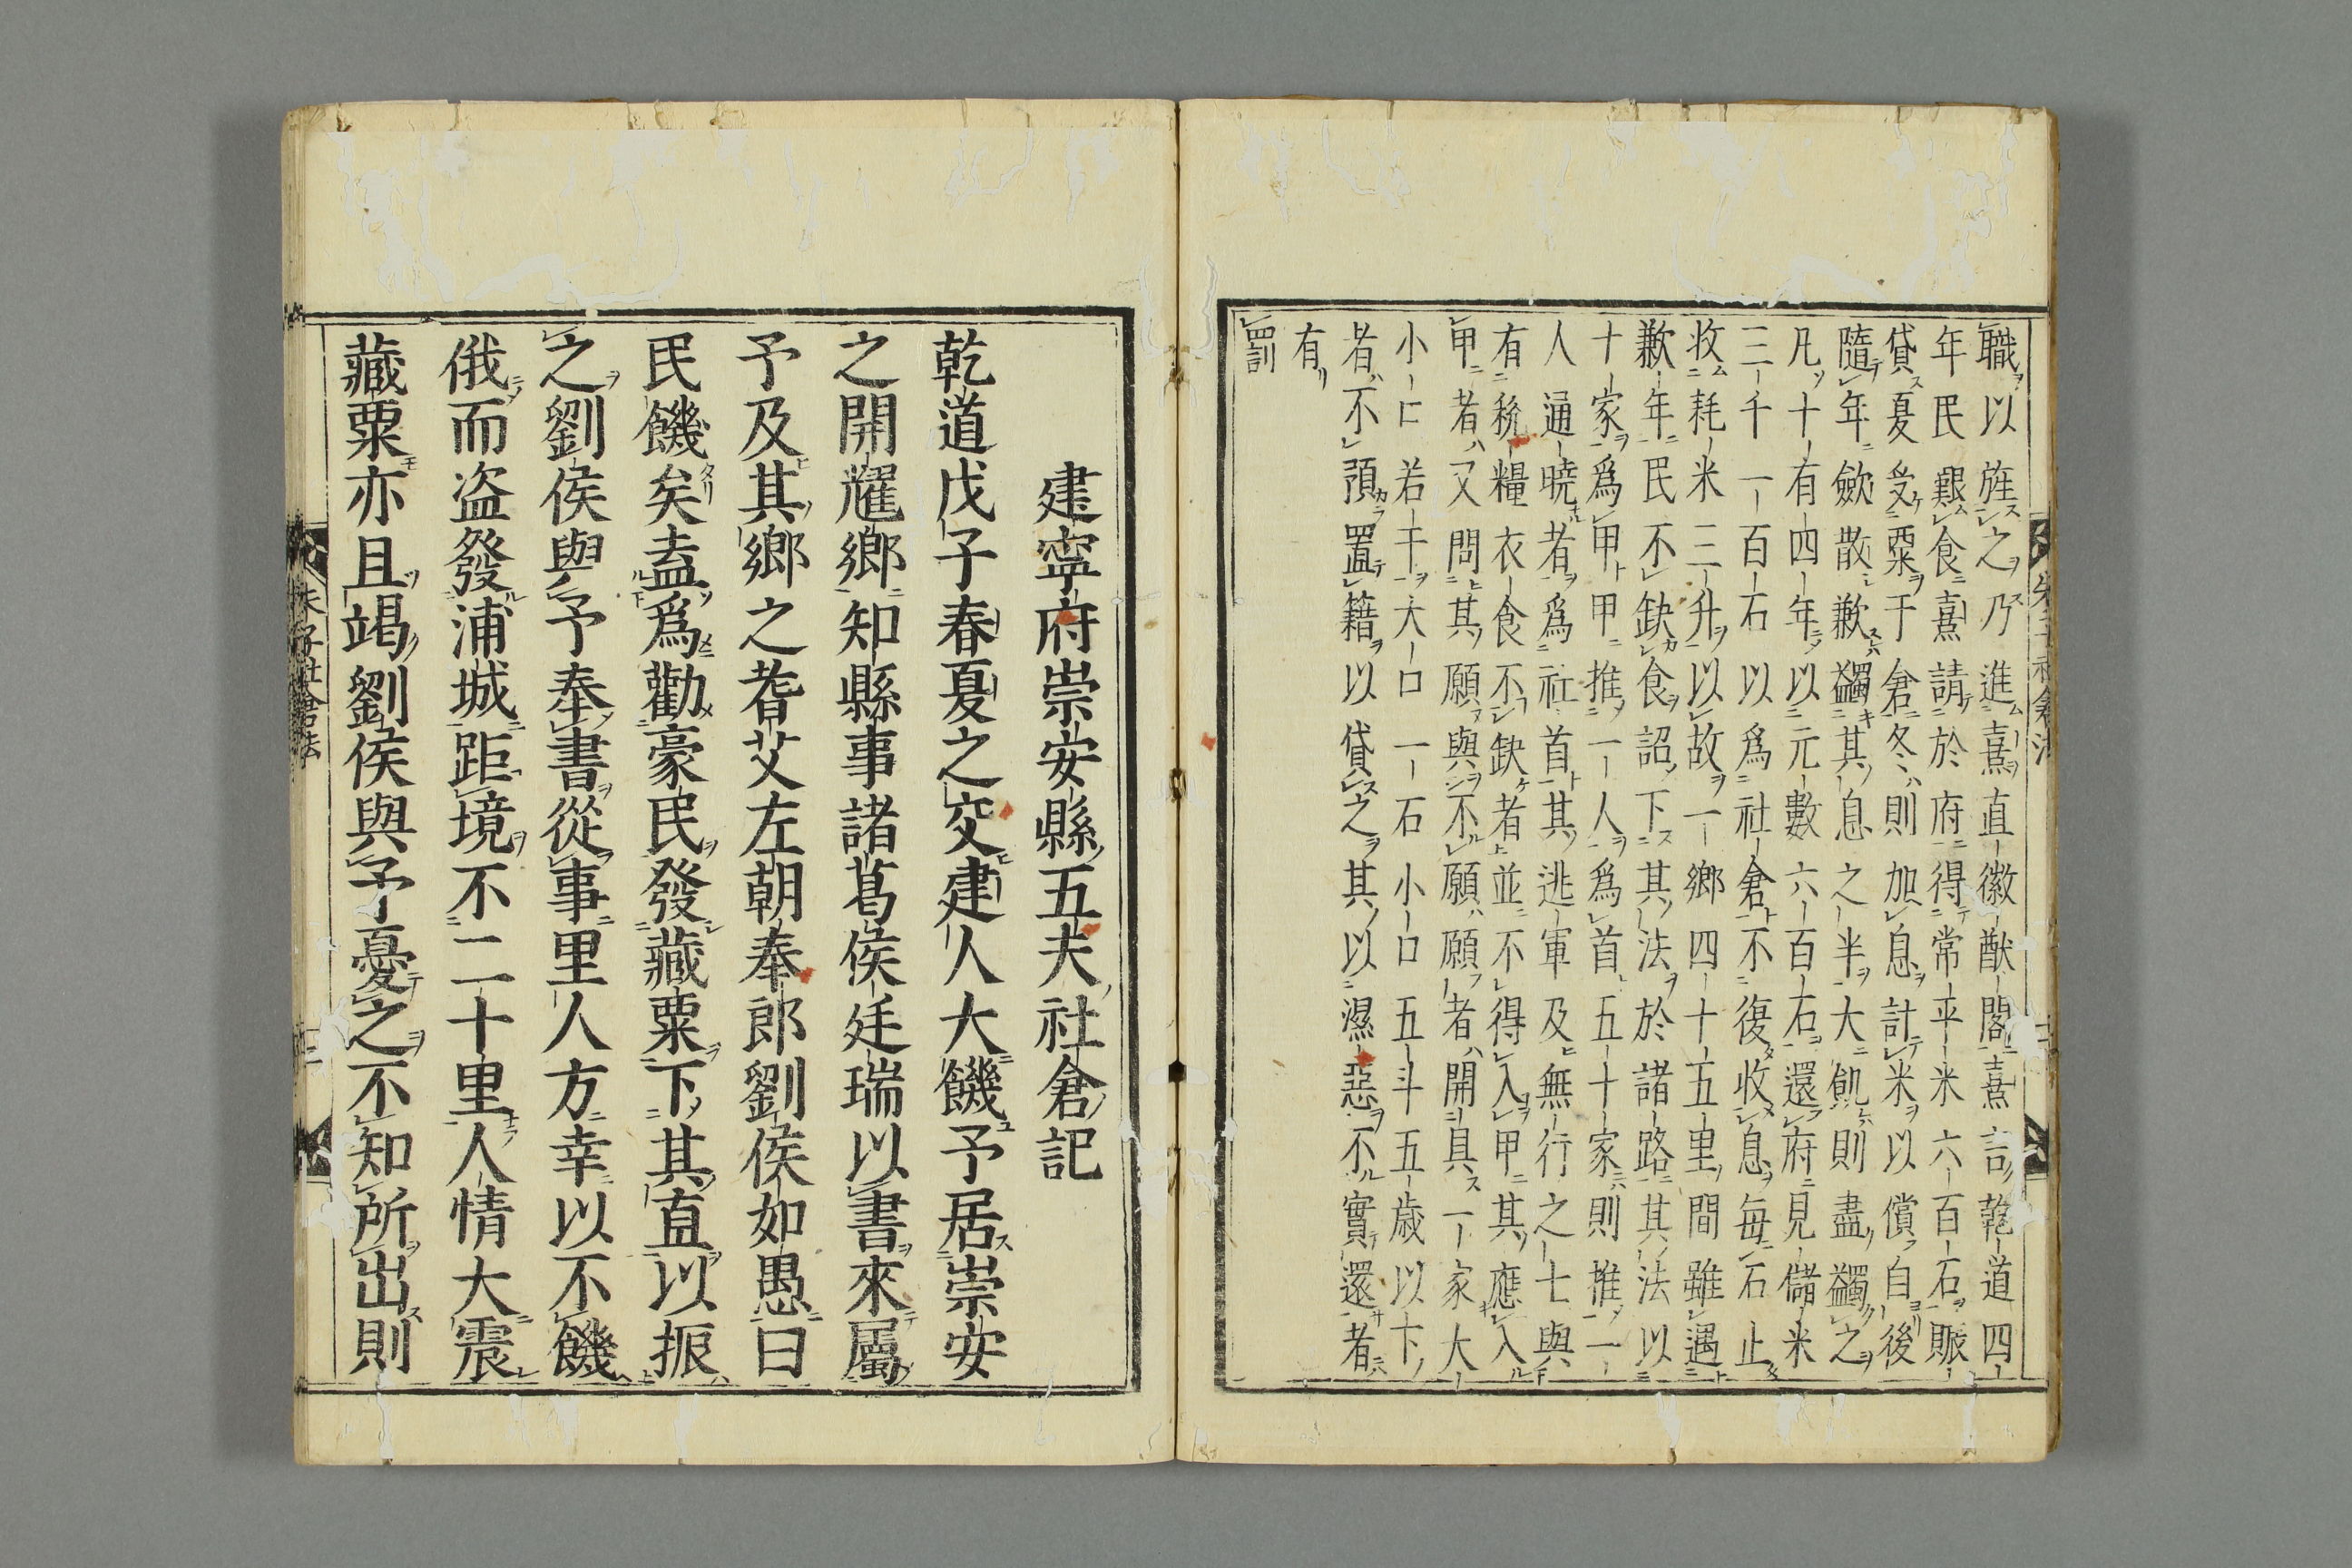 職以旌之乃進熹直徽猷閣熹言乾道四
年民艱食熹請於府得常平米六百石賑
貸夏受粟于倉冬則加息計米以償自後
隨年斂散歉蠲其息之半大飢則盡蠲之
凡十有四年以元數六百石還府見儲米
三千一百石以為社倉不復收息每石止
收耗米三升以故一鄉四十五里間雖遇
歉年民不缺食詔下其法於諸路其法以
十家爲甲甲推一人爲首五十家則推一
人通曉者爲社首其逃軍及無行之士與
有稅糧衣食不缺者並不得入甲其應入
甲者又問其願與不願願者開具一家大
小口若干大口一石小口五斗五歲以下
者不預置籍以貸之其以濕惡不實還者
有
罰
建寧府崇安縣五夫社倉記
乾道戊子春夏之交建人大饑予居崇安
之開耀鄉知縣事諸葛侯廷瑞以書來屬
予及其鄉之耆艾左朝奉郎劉侯如愚曰
民饑矣盍爲勸豪民發藏粟下其直以振
之劉侯與予奉書從事里人方幸以不饑
俄而盗發浦城距境不二十里人情大震
藏粟亦且竭劉侯與予憂之不知所出則
朱子社倉法